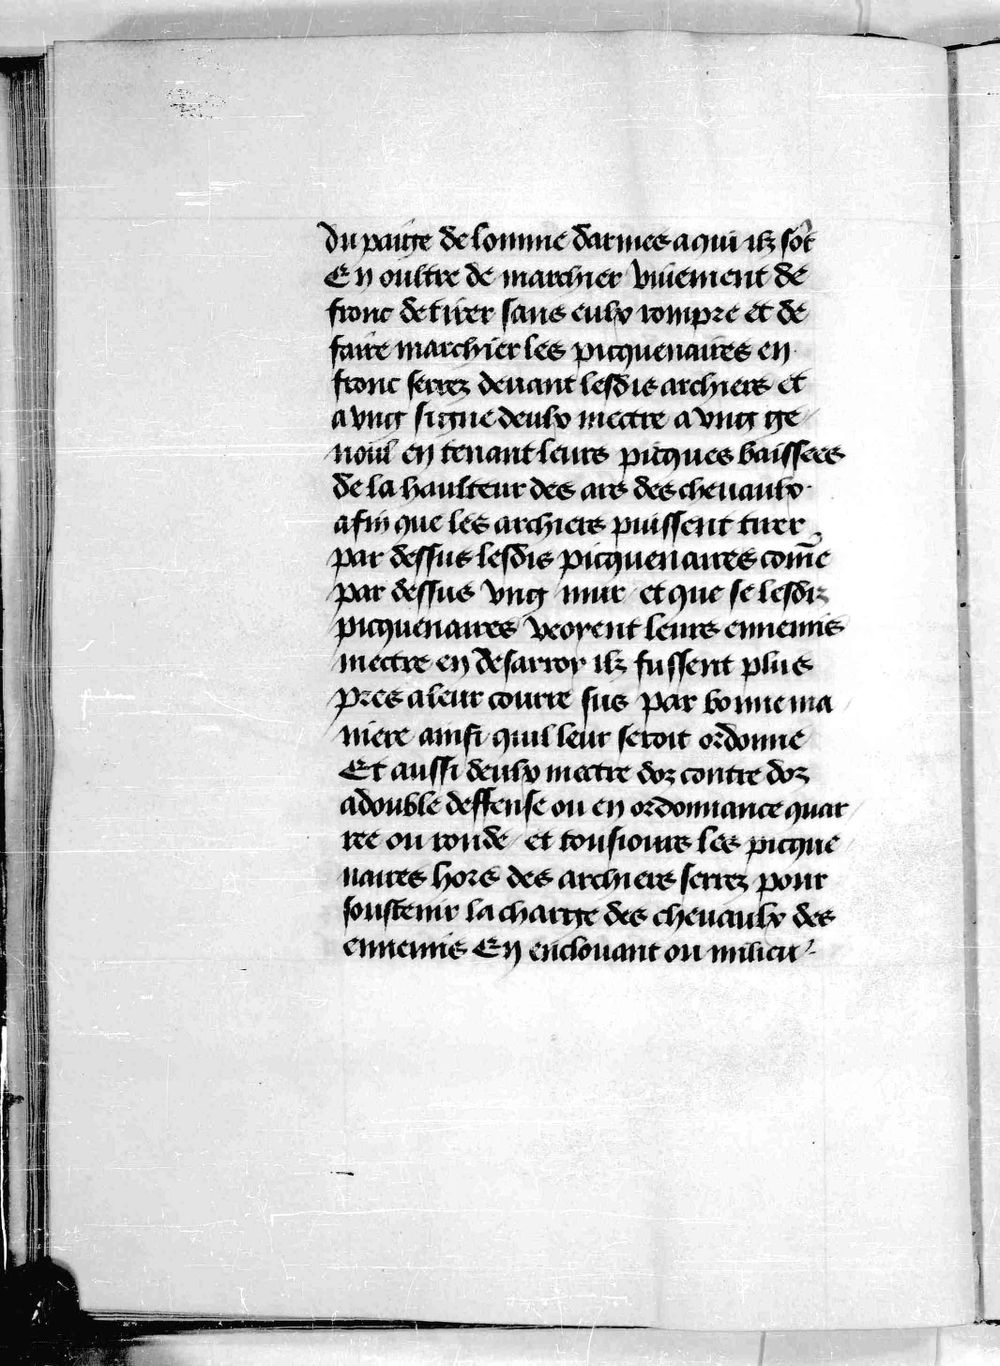 du paige de lomme darmes a qui ilz sōt
En oultre de marchier viuement de
fronc de tirer sans eulx rompre et de
faire marchier les picquenaires en
fronc serrez deuant lesdis archiers et
a vng signe deulx mectre a vng ge
noul en tenant leurs picques baissees
de la haulteur des ars des cheuaulx
afin que les archiers puissent tirer
par dessus lesdis picquenaires com̄e
par dessus vng mur / et que se lesdiz
picquenaires veoyent leurs ennemis
mectre en desarroy ilz fussent plus
pres a leur courre sus par bonne ma
niere ainsi quil leur seroit ordonne
Et aussi deulx mectre doz contre doz
a double deffense ou en ordonnance quar
ree ou ronde / et tousiours les picque
naires hors des archiers serrez pour
soustenir la charge des cheuaulx des
ennemis En enclouant ou milieu